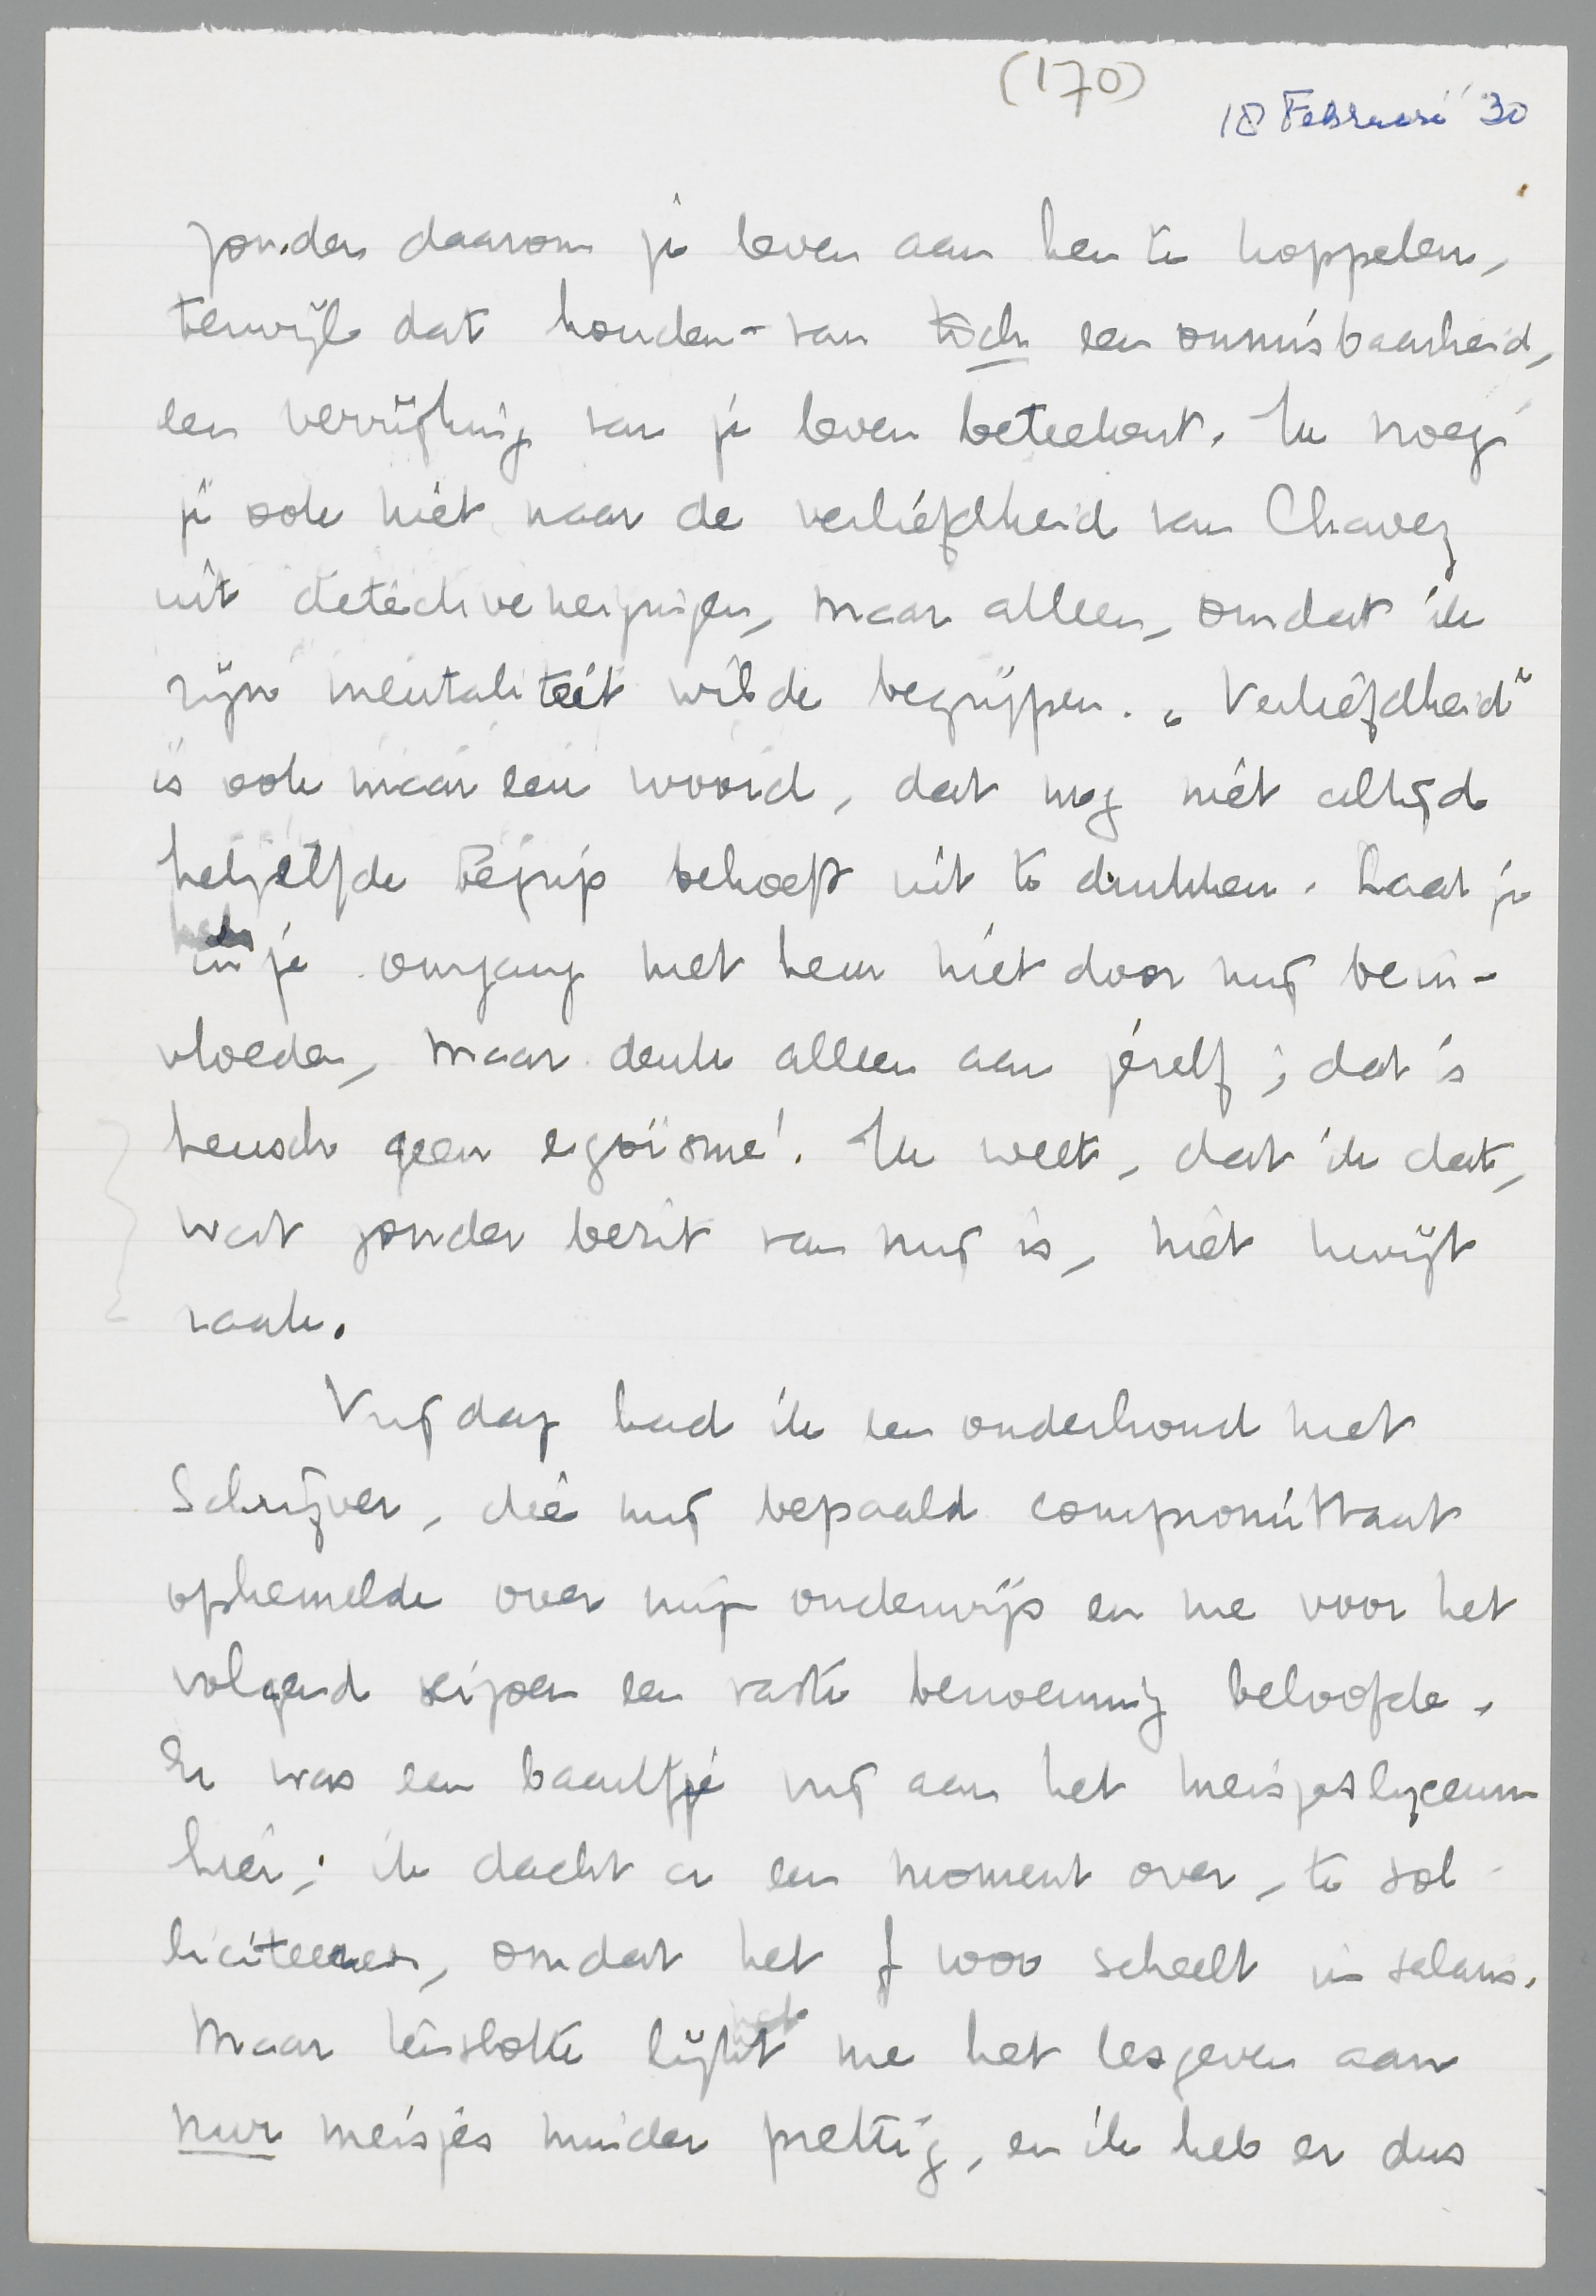 (170)
18 Februari '30
zonder daarom je leven aan hen te koppelen,
terwijl dat houden-van toch een onmisbaarheid,
een verrijking van je leven beteekent. Ik vroeg
je ook niet naar de verliefdheid van Chavez
uit detectiveneigingen, maar alleen, omdat ik
zijn mentaliteit wilde begrijpen. „Verliefdheid”
is ook maar een woord, dat nog niet altijd
hetzelfde begrip behoeft uit te drukken. Laat je
in je omgang met hem niet door mij beïn-
vloeden, maar denk alleen aan jezelf; dat is
heusch geen egoïsme! Ik weet, dat ik dat,
wat zonder bezit van mij is, niet kwijt
raak.
Vrijdag had ik een onderhoud met
Schrijver, die mij bepaald compromittant
ophemelde over mijn onderwijs en me voor het
volgend seizoen een vaste benoeming beloofde.
Er was een baantje vrij aan het meisjeslyceum
hier; ik dacht er een moment over, te sol-
liciteeren, omdat het f 1000 scheelt in salaris.
Maar tenslotte lijkt me het lesgeven aan
nur meisjes minder prettig, en ik heb er dus